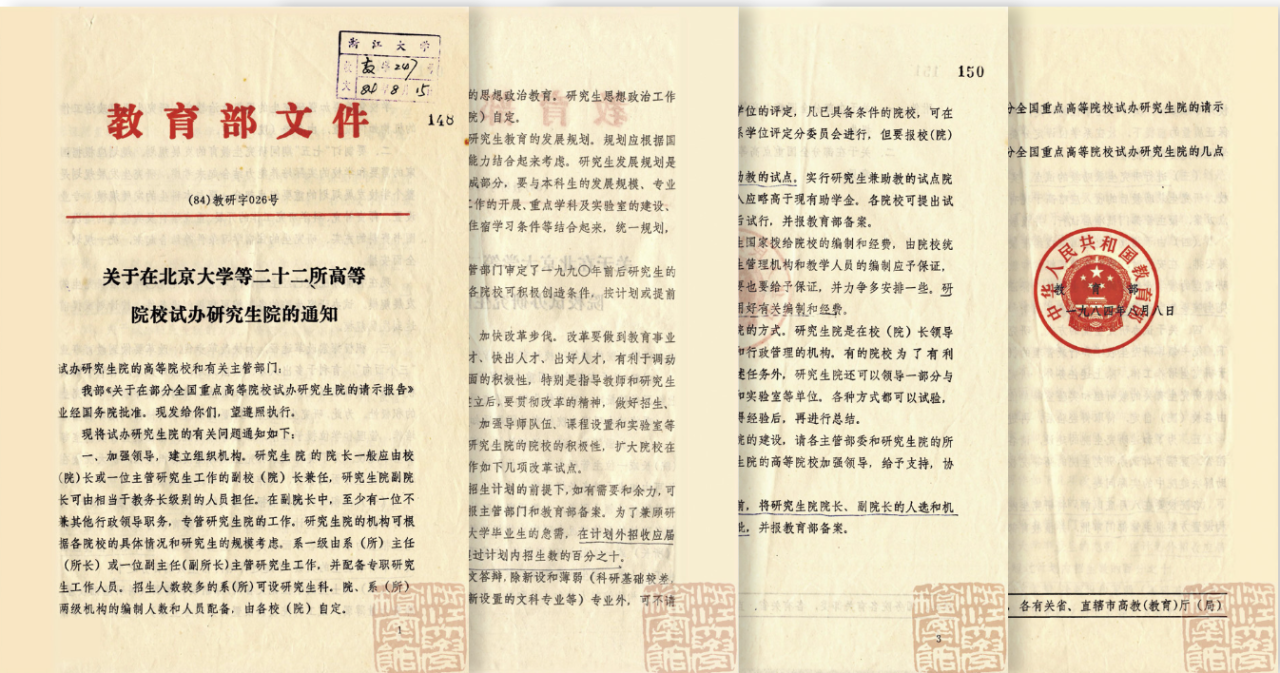 浙江大学
教学247号
84年8月15
教育部文件
148
(84)教研字026号
关于在北京大学等二十二所高等
院校试办研究生院的通知
试办研究生院的高等院校和有关主管部门：
我部《关于在部分全国重点高等院校试办研究生院的请示报告》
业经国务院批准。现发给你们，望遵照执行。
现将试办研究生院的有关问题通知如下：
一、加强领导，建立组织机构。研究生院的院长一般应由校
(院)长或一位主管研究生工作的副校（院）长兼任，研究生院副院
长可由相当于教务长级别的人员担任。在副院长中，至少有一位不
兼其他行政领导职务，专管研究生院的工作。研究生院的机构可根
据各院校的具体情况和研究生的规模考虑。系一级由系（所）主任
（所长）或一位副主任(副所长)主管研究生工作，并配备专职研究
生工作人员。招生人数较多的系(所)可设研究生科。院、系（所）
两级机构的编制人数和人员配备，由各校（院）自定。
1
的思想政治教育。研究生思想政治工作
院）自定。
研究生教育的发展规划。规划应根据国
能力结合起来考虑。研究生发展规划是
成部分，要与本科生的发展规模、专业
工作的开展、重点学科及实验室的建设、
住宿学习条件等结合起来，统一规划，
管部门审定了一九九〇年前后研究生的
各院校可积极创造条件，按计划或提前
加快改革步伐。改革要做到教育事业
才、快出人才、出好人才，有利于调动
面的积极性，特别是指导教师和研究生
建立后，要贯彻改革的精神，做好招生、
加强导师队伍、课程设置和实验室等
研究生院的院校的积极性，扩大院校在
作如下几项改革试点。
招生计划的前提下，如有需要和余力，可
报主管部门和教育部备案。为了兼顾研
大学毕业生的急需，在计划外招收应届
超过计划内招生数的百分之十。
文答辩，除新设和薄弱（科研基础较差，
新设置的文科专业等）专业外，可不请
150
学位的评定，凡已具备条件的院校，可在
系学位评定分委员会进行，但要报校(院)
助教的试点，实行研究生兼助教的试点院
应略高于现有助学金。各院校可提出试
后试行，并报教育部备案。
生国家拨给院校的编制和经费，由院校统
生管理机构和教学人员的编制应予保证，
要也要给予保证，并力争多安排一些。研
用好有关编制和经费。
院的方式。研究生院是在校（院）长领导
和行政管理的机构。有的院校为了有利
述任务外，研究生院还可以领导一部分与
和实验室等单位。各种方式都可以试验，
得经验后，再进行总结。
院的建设。请各主管部委和研究生院的所
生院的高等院校加强领导，给予支持，协
前，将研究生院院长、副院长的人选和机
并报教育部备案。
3
分全国重点高等院校试办研究生院的请示
分全国重点高等院校试办研究生院的几点
中华人民共和国教育部
教育部
一九八四年八月八日
各有关省、直辖市高教(教育)厅（局）